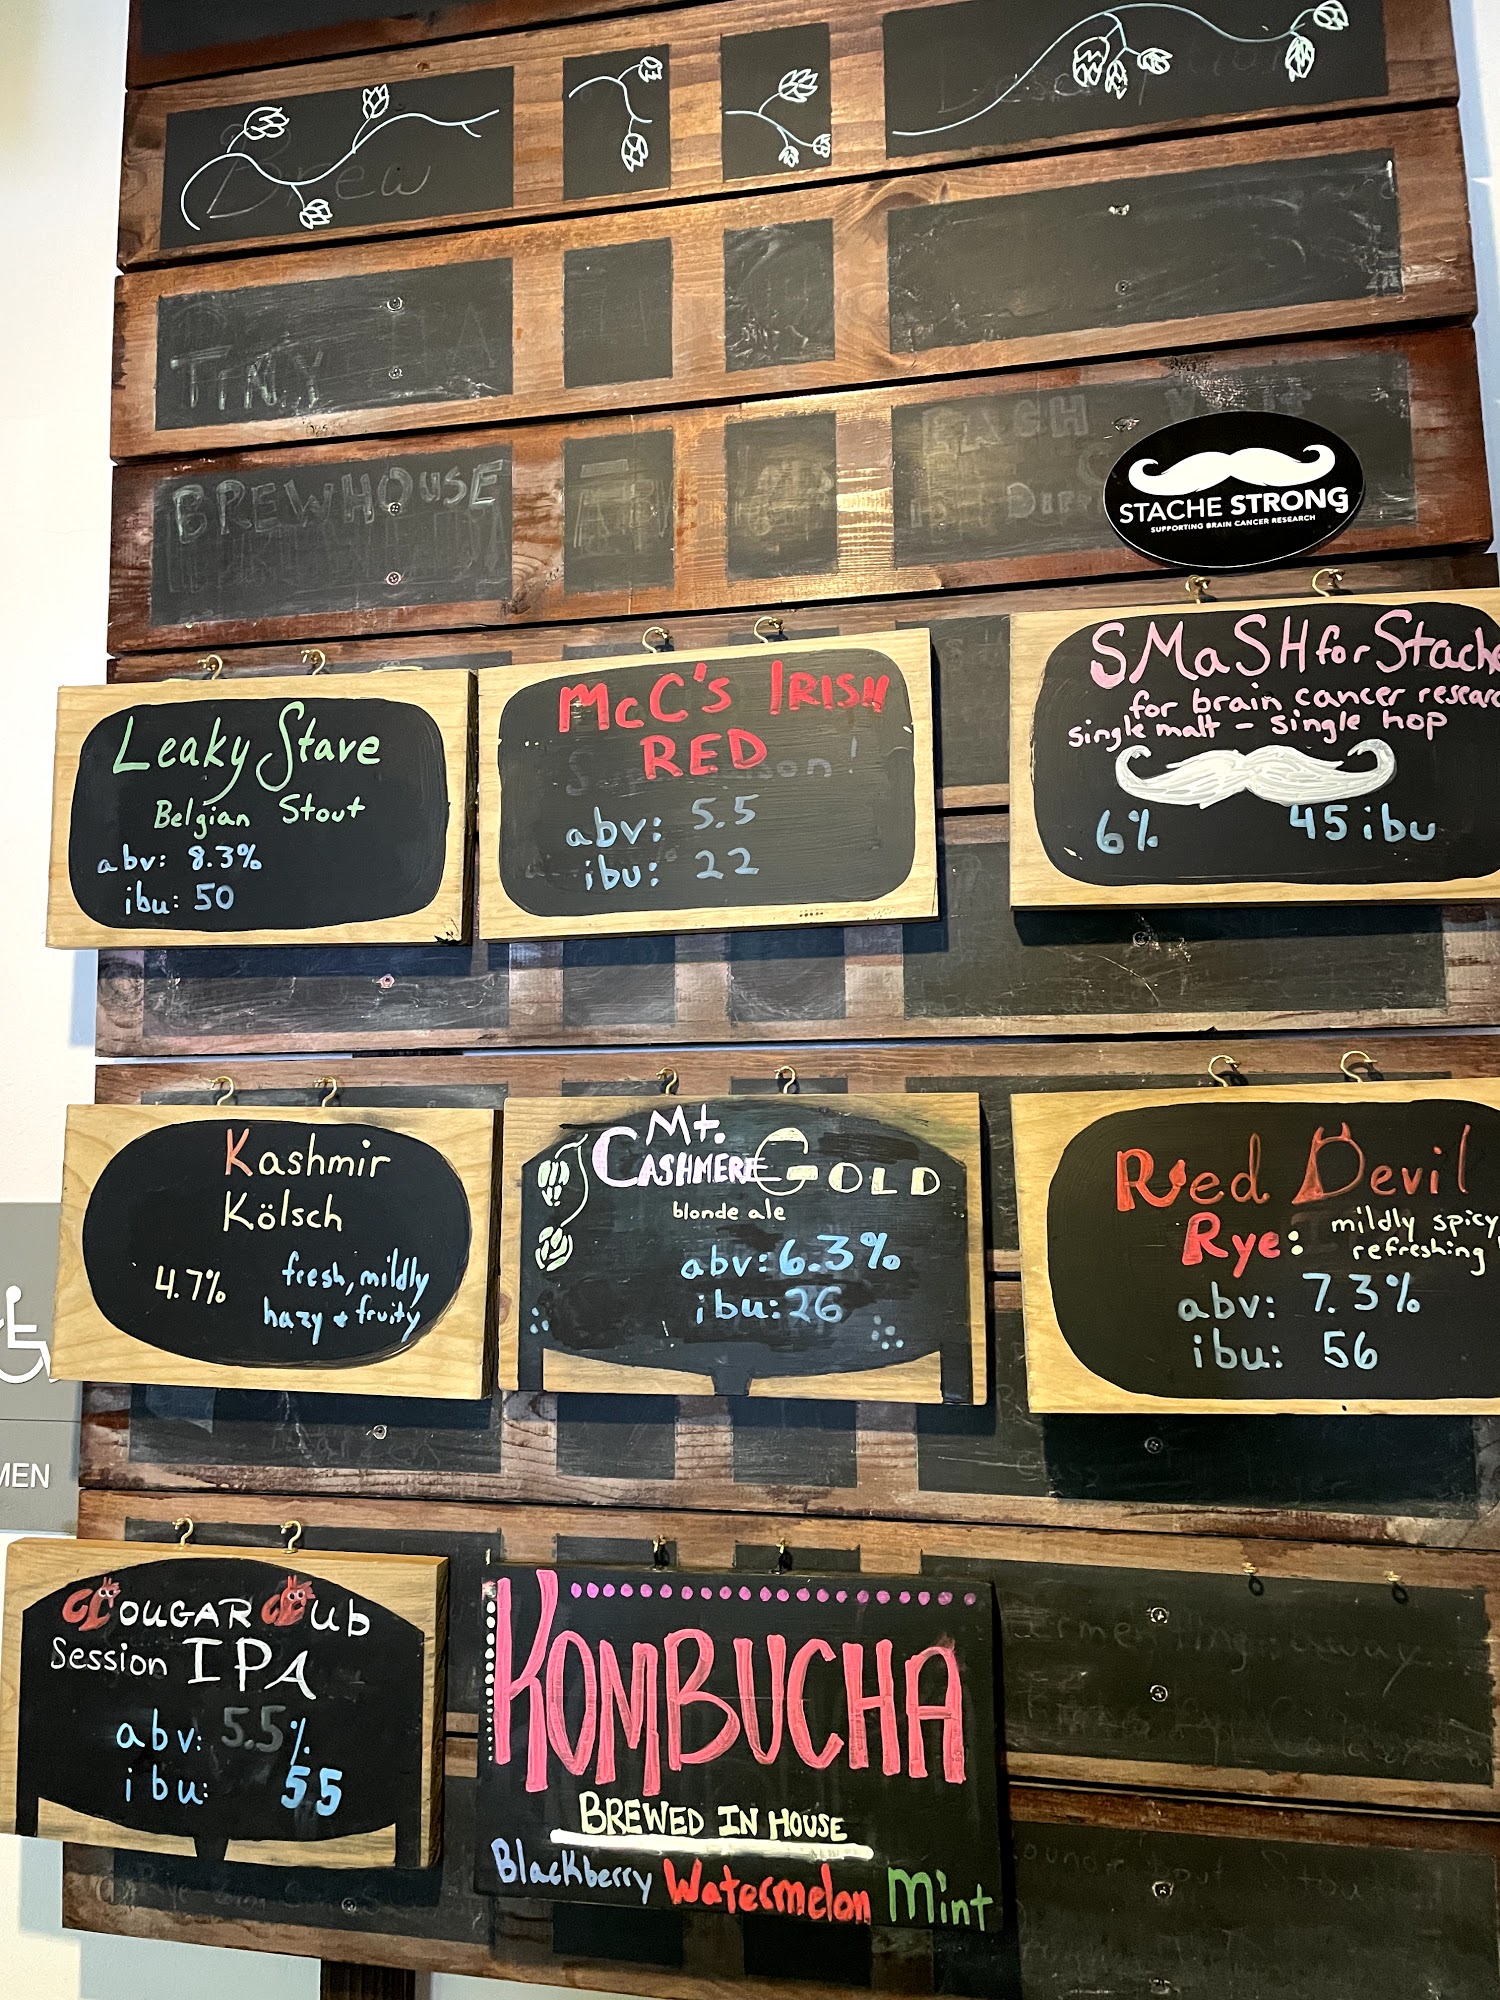 Brew
TINY
BREWHOUSE
STACHE STRONG
SUPPORTING BRAIN CANCER RESEARCH
Leaky Stave
Belgian Stout
abv: 8.3%
ibu: 50
McC's IRISH
RED
abv: 5.5
ibu: 22
SMaSH for Stache
for brain cancer researc
single malt - single hop
6% 45 ibu
Kashmir
Kölsch
4.7%
fresh, mildly
hazy & fruity
Mt.
CASHMERE GOLD
blonde ale
abv: 6.3%
ibu: 26
Red Devil
Rye: mildly spicy
refreshing!
abv: 7.3%
ibu: 56
MEN
COUGAR Cub
Session IPA
abv: 5.5%
ibu: 55
KOMBUCHA
BREWED IN HOUSE
Blackberry Watermelon Mint